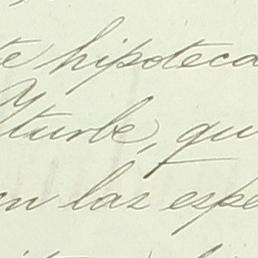 te hipoteca
Yturbe, qu
on las espe